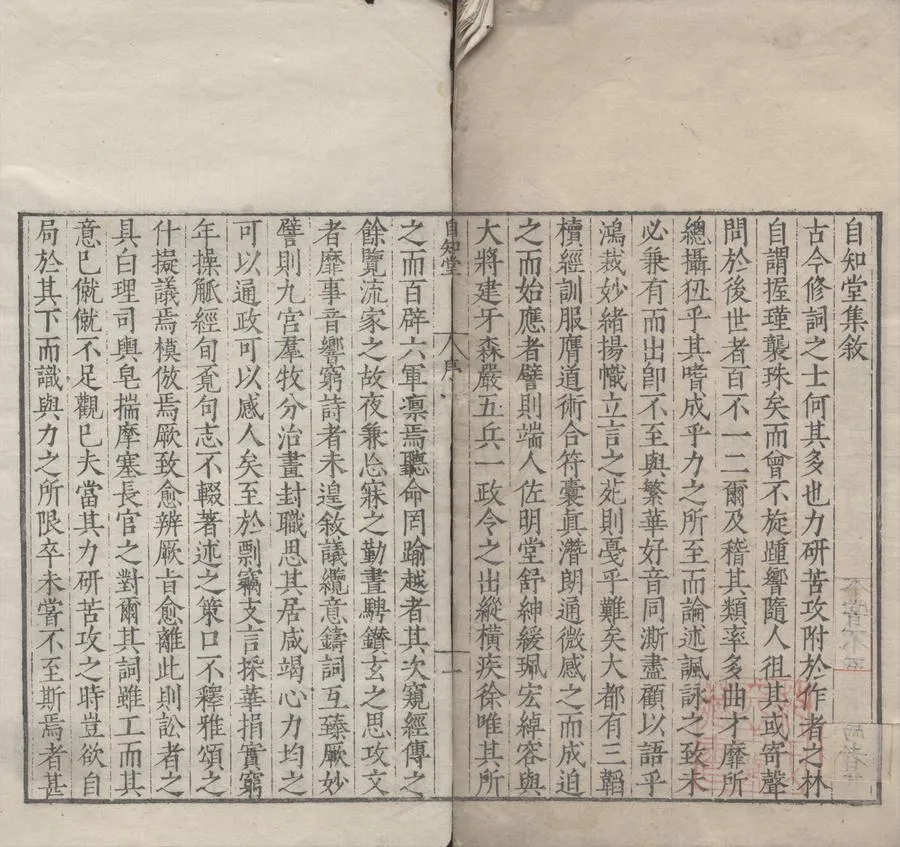 自知堂集敘
古今修詞之士何其多也力研苦攻附於作者之林
自謂握瑾襲珠矣而曾不旋踵響隨人徂其或寄聲
問於後世者百不一二爾及稽其類率多曲才靡所
總攝狃乎其嗜成乎力之所至而論述諷詠之致未
必兼有而出卽不至與繁華好音同澌盡顧以語乎
鴻裁妙緒揚幟立言之苑則戛乎難矣大都有三韜
櫝經訓服膺道術合符囊眞潛朗通微感之而成迫
之而始應者譬則端人佐明堂舒紳緩珮宏綽容與
大將建牙森嚴五兵一政令之出縱橫疾徐唯其所
自知堂 序 一
之而百辟六軍凛焉聽命罔踰越者其次窺經傳之
餘覽流家之故夜兼忘寐之勤晝騁鑽玄之思攻文
者靡事音響窮詩者未遑敘議纜意鑄詞互臻厥妙
譬則九官羣牧分治畫封職思其居咸竭心力均之
可以通政可以感人矣至於剽竊支言探華捐實窮
年操觚經旬覔句志不輟著述之策口不釋雅頌之
什擬議焉模倣焉厥致愈辨厥旨愈離此則訟者之
具白理司輿皂揣摩塞長官之對爾其詞雖工而其
意已僦僦不足觀已夫當其力研苦攻之時豈欲自
局於其下而識與力之所限卒未嘗不至斯焉者甚